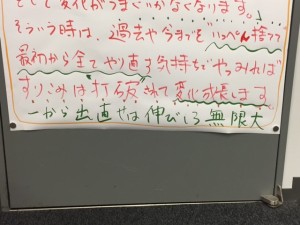 そして変化がうまくいかなくなります。
そういう時は、過去や今までをいっぺん捨てて
最初から全てやり直す気持ちでやってみれば
すりこみは打破されて変化成長します
一から出直せば伸びしろ無限大